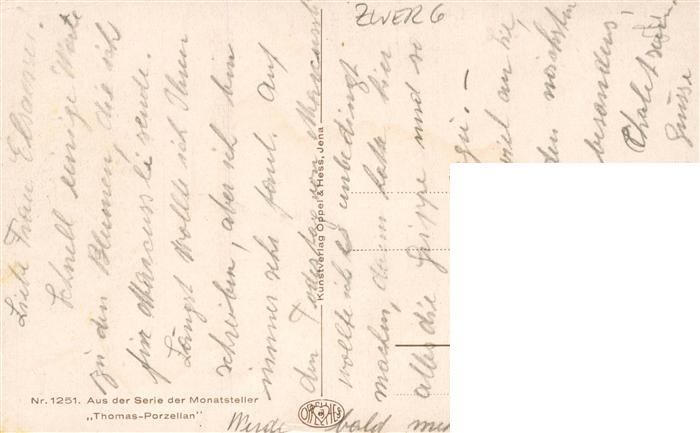 ZWERG
Liebe Frau Elsamei!
Schnell einige Worte
zu den Blumen, die ich
für Marcuss li sende.
Längst wollte ich Ihnen
schreiben, aber ich bin
immer sehr faul. Auf
den Todestag von
wollte ich es unbedingt
machen, dann hatte hier
alles die Grippe und so
zu. –
viel an Sie,
den nächsten
besonders!
Grüsse
Werde bald
Kunstverlag Oppel & Hess, Jena
Nr. 1251. Aus der Serie der Monatsteller
„Thomas-Porzellan"